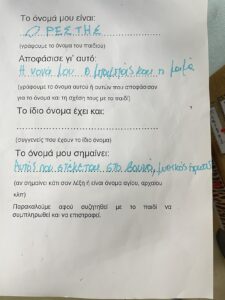 Το όνομά μου είναι:
ΟΡΕΣΤΗΣ
(γράφουμε το όνομα του παιδιού)
Αποφάσισε γι' αυτό:
Η νονα μου ο μπαμπάς και η μαμά
(γράφουμε το όνομα αυτού ή αυτών που αποφάσισαν
για το όνομα και τη σχέση τους με το παιδί)
Το ίδιο όνομα έχει και:
(συγγενείς που έχουν το ίδιο όνομα)
Το όνομά μου σημαίνει:
Αυτός που στέκεται στο βουνό,
(αν σημαίνει κάτι σαν λέξη ή είναι όνομα αγίου, αρχαίου
κλπ)
Παρακαλούμε αφού συζητηθεί με το παιδί να
συμπληρωθεί και να επιστραφεί.